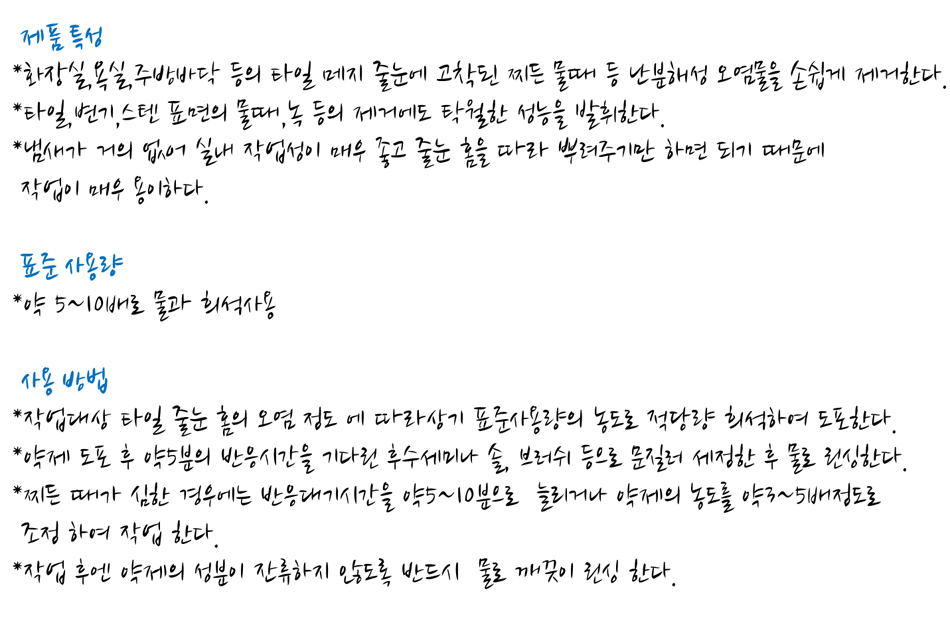 제품 특성
*화장실,욕실,주방바닥 등의 타일 메지 줄눈에 고착된 찌든 물때 등 난분해성 오염물을 손쉽게 제거한다.
*타일,변기,스텐 표면의 물때,녹 등의 제거에도 탁월한 성능을 발휘한다.
*냄새가 거의 없어 실내 작업성이 매우 좋고 줄눈 홈을 따라 뿌려주기만 하면 되기 때문에
작업이 매우 용이하다.
표준 사용량
*약 5~10배로 물과 희석사용
사용 방법
*작업대상 타일 줄눈 홈의 오염 정도 에 따라상기 표준사용량의 농도로 적당량 희석하여 도포한다.
*약제 도포 후 약5분의 반응시간을 기다린 후수세미나 솔, 브러쉬 등으로 문질러 세정한 후 물로 린싱한다.
*찌든 때가 심한 경우에는 반응대기시간을 약5~10분으로 늘리거나 약제의 농도를 약3~5배정도로
조정 하여 작업 한다.
*작업 후엔 약제의 성분이 잔류하지 않도록 반드시 물로 깨끗이 린싱 한다.